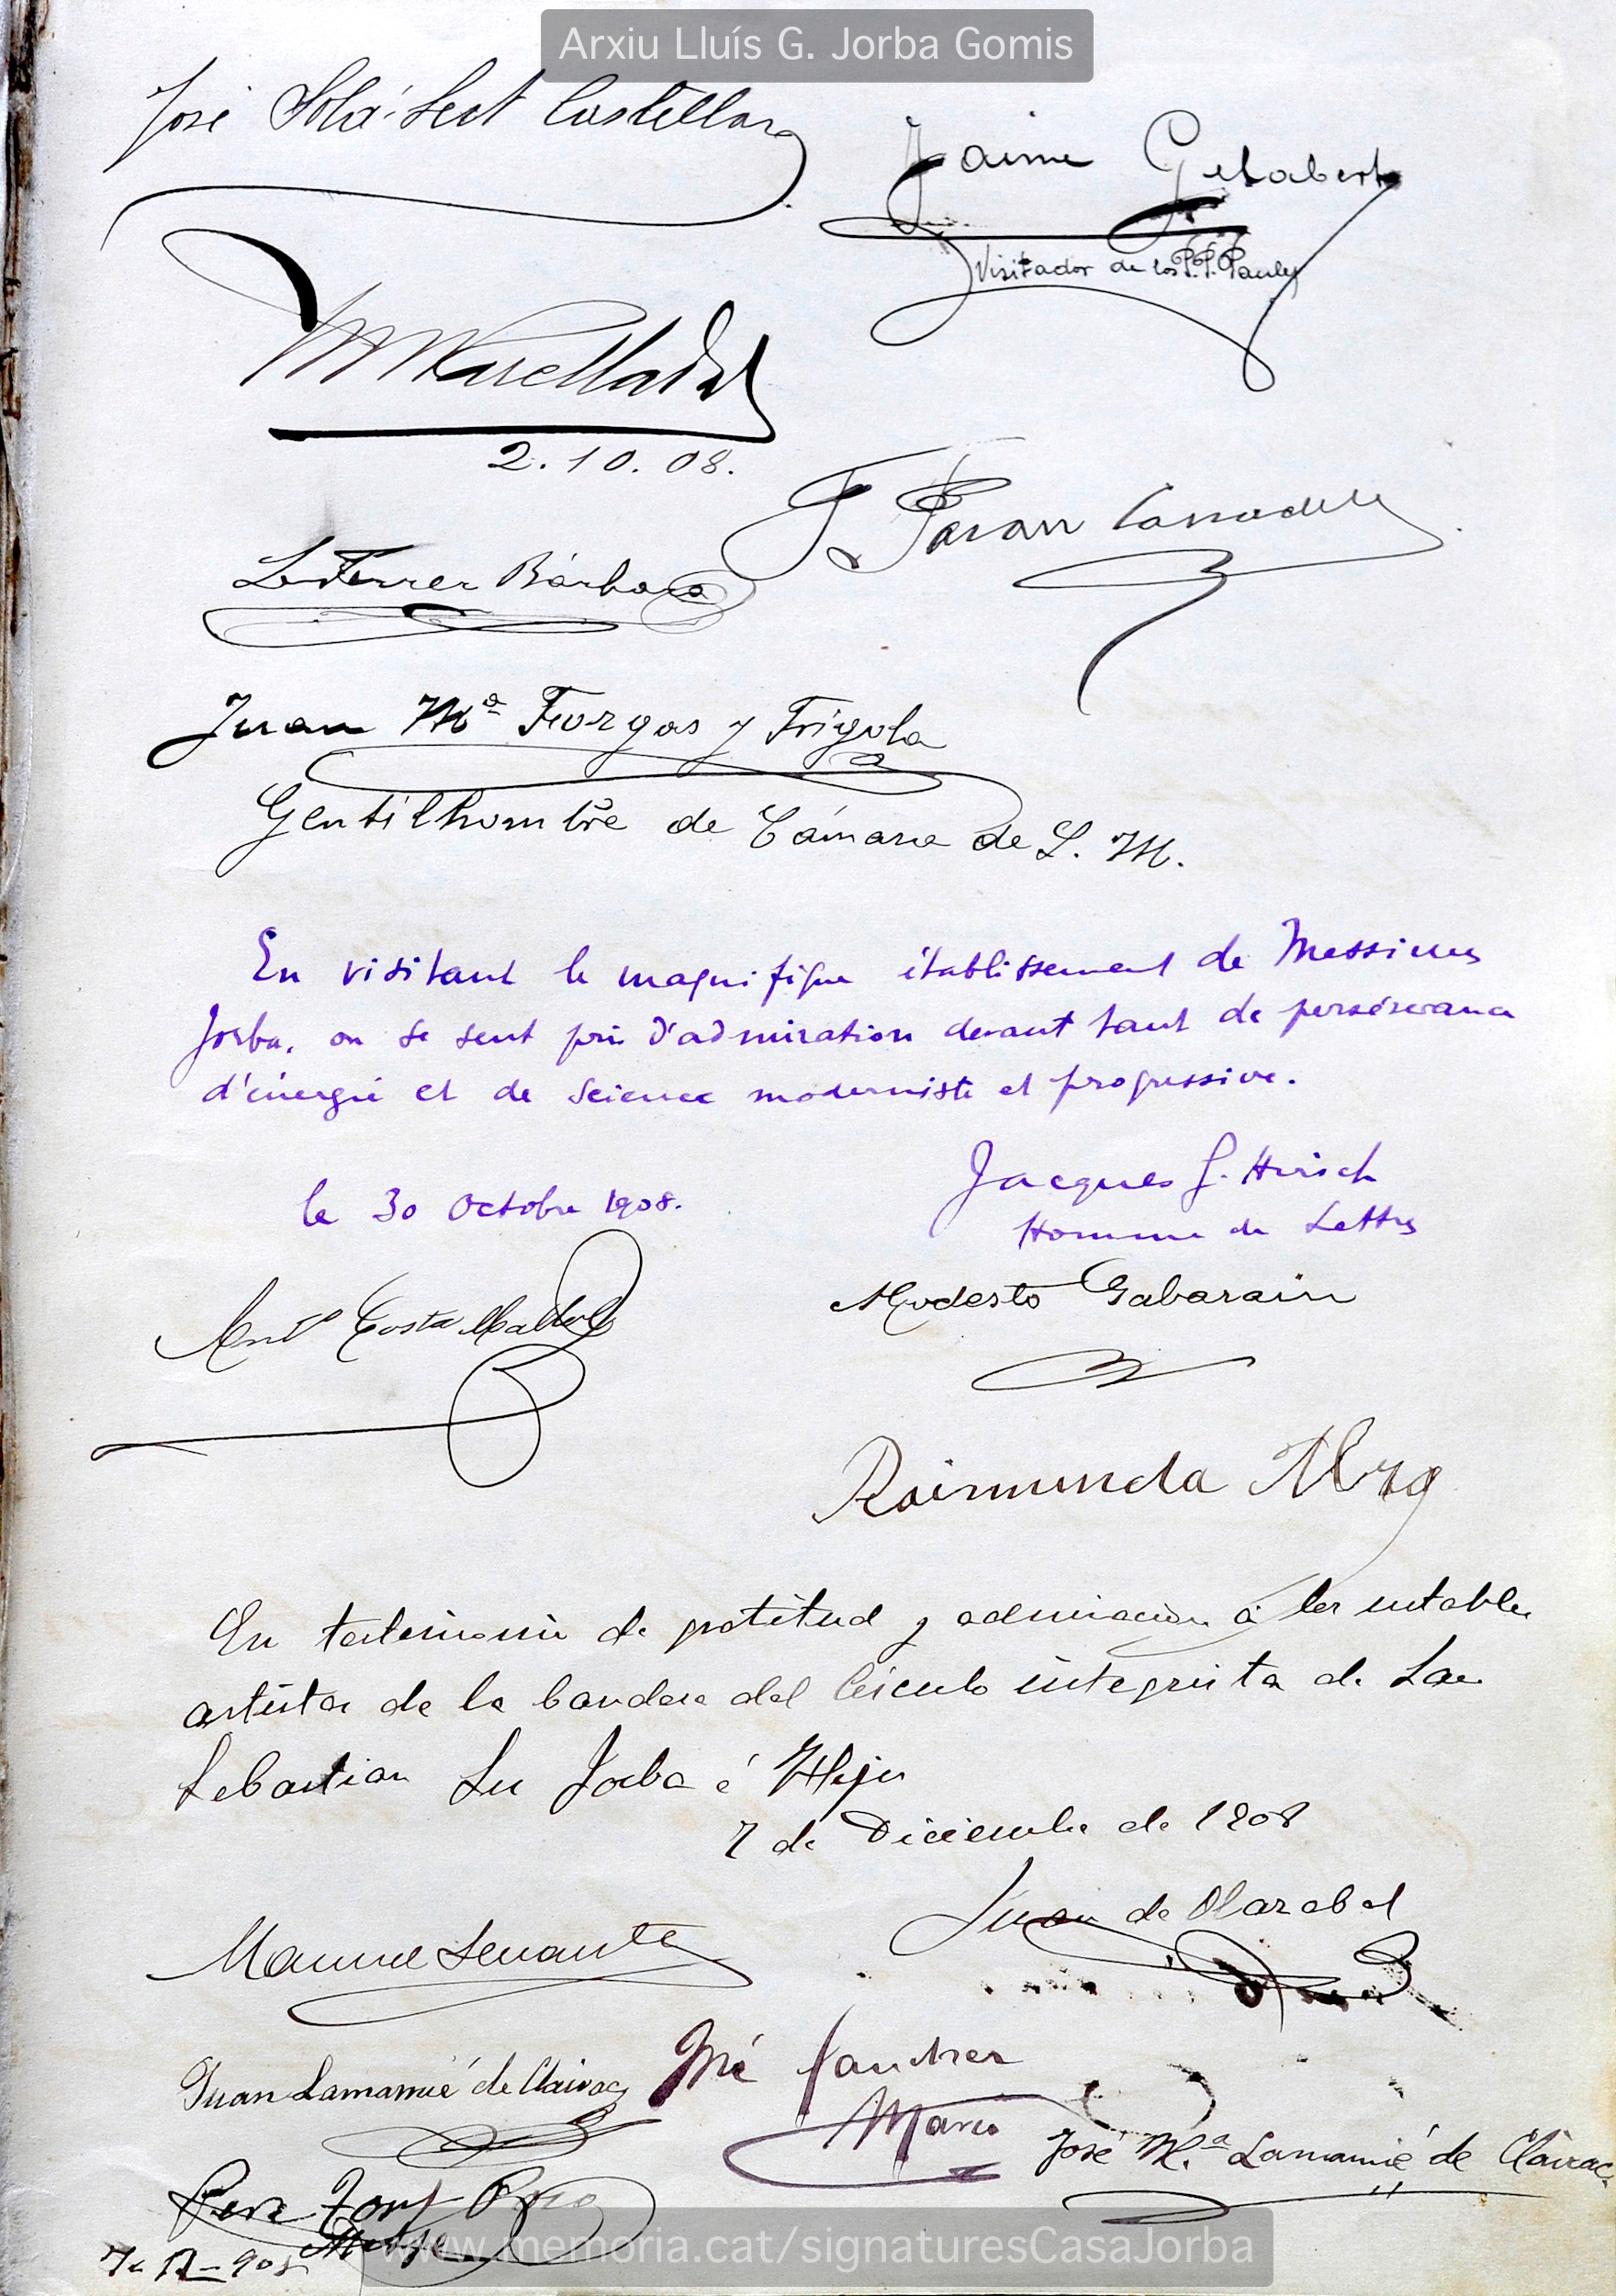 Arxiu Lluís G. Jorba Gomis
José Solá-Sert Castellar
Jaime Gelabert
Visitador de los P.P. Paules
2.10.08.
Ferrer Bárbara
Juan Mª Forgas y Frigola
Gentilhombre de Cámara de S. M.
En visitant le magnifique établissement de Messieurs
Jorba, on se sent pris d'admiration devant tant de persévérance
d'énergie et de science moderniste et progressive.
le 30 Octobre 1908.
Jacques J. Hirsch
Homme de Lettres
Costa
Modesto Gabarain
Raimunda
En testimonio de gratitud y admiracion á los notables
artistas de la bandera del Circulo integrista de San
Sebastian Srs Jorba é Hijos
7 de Diciembre de 1908
Juan de Olazabal
Manuel Senante
José Sanchez
Marco
Juan Lamamié de Clairac
José Mª Lamamié de Clairac
Pere Font
www.memoria.cat/signaturesCasaJorba